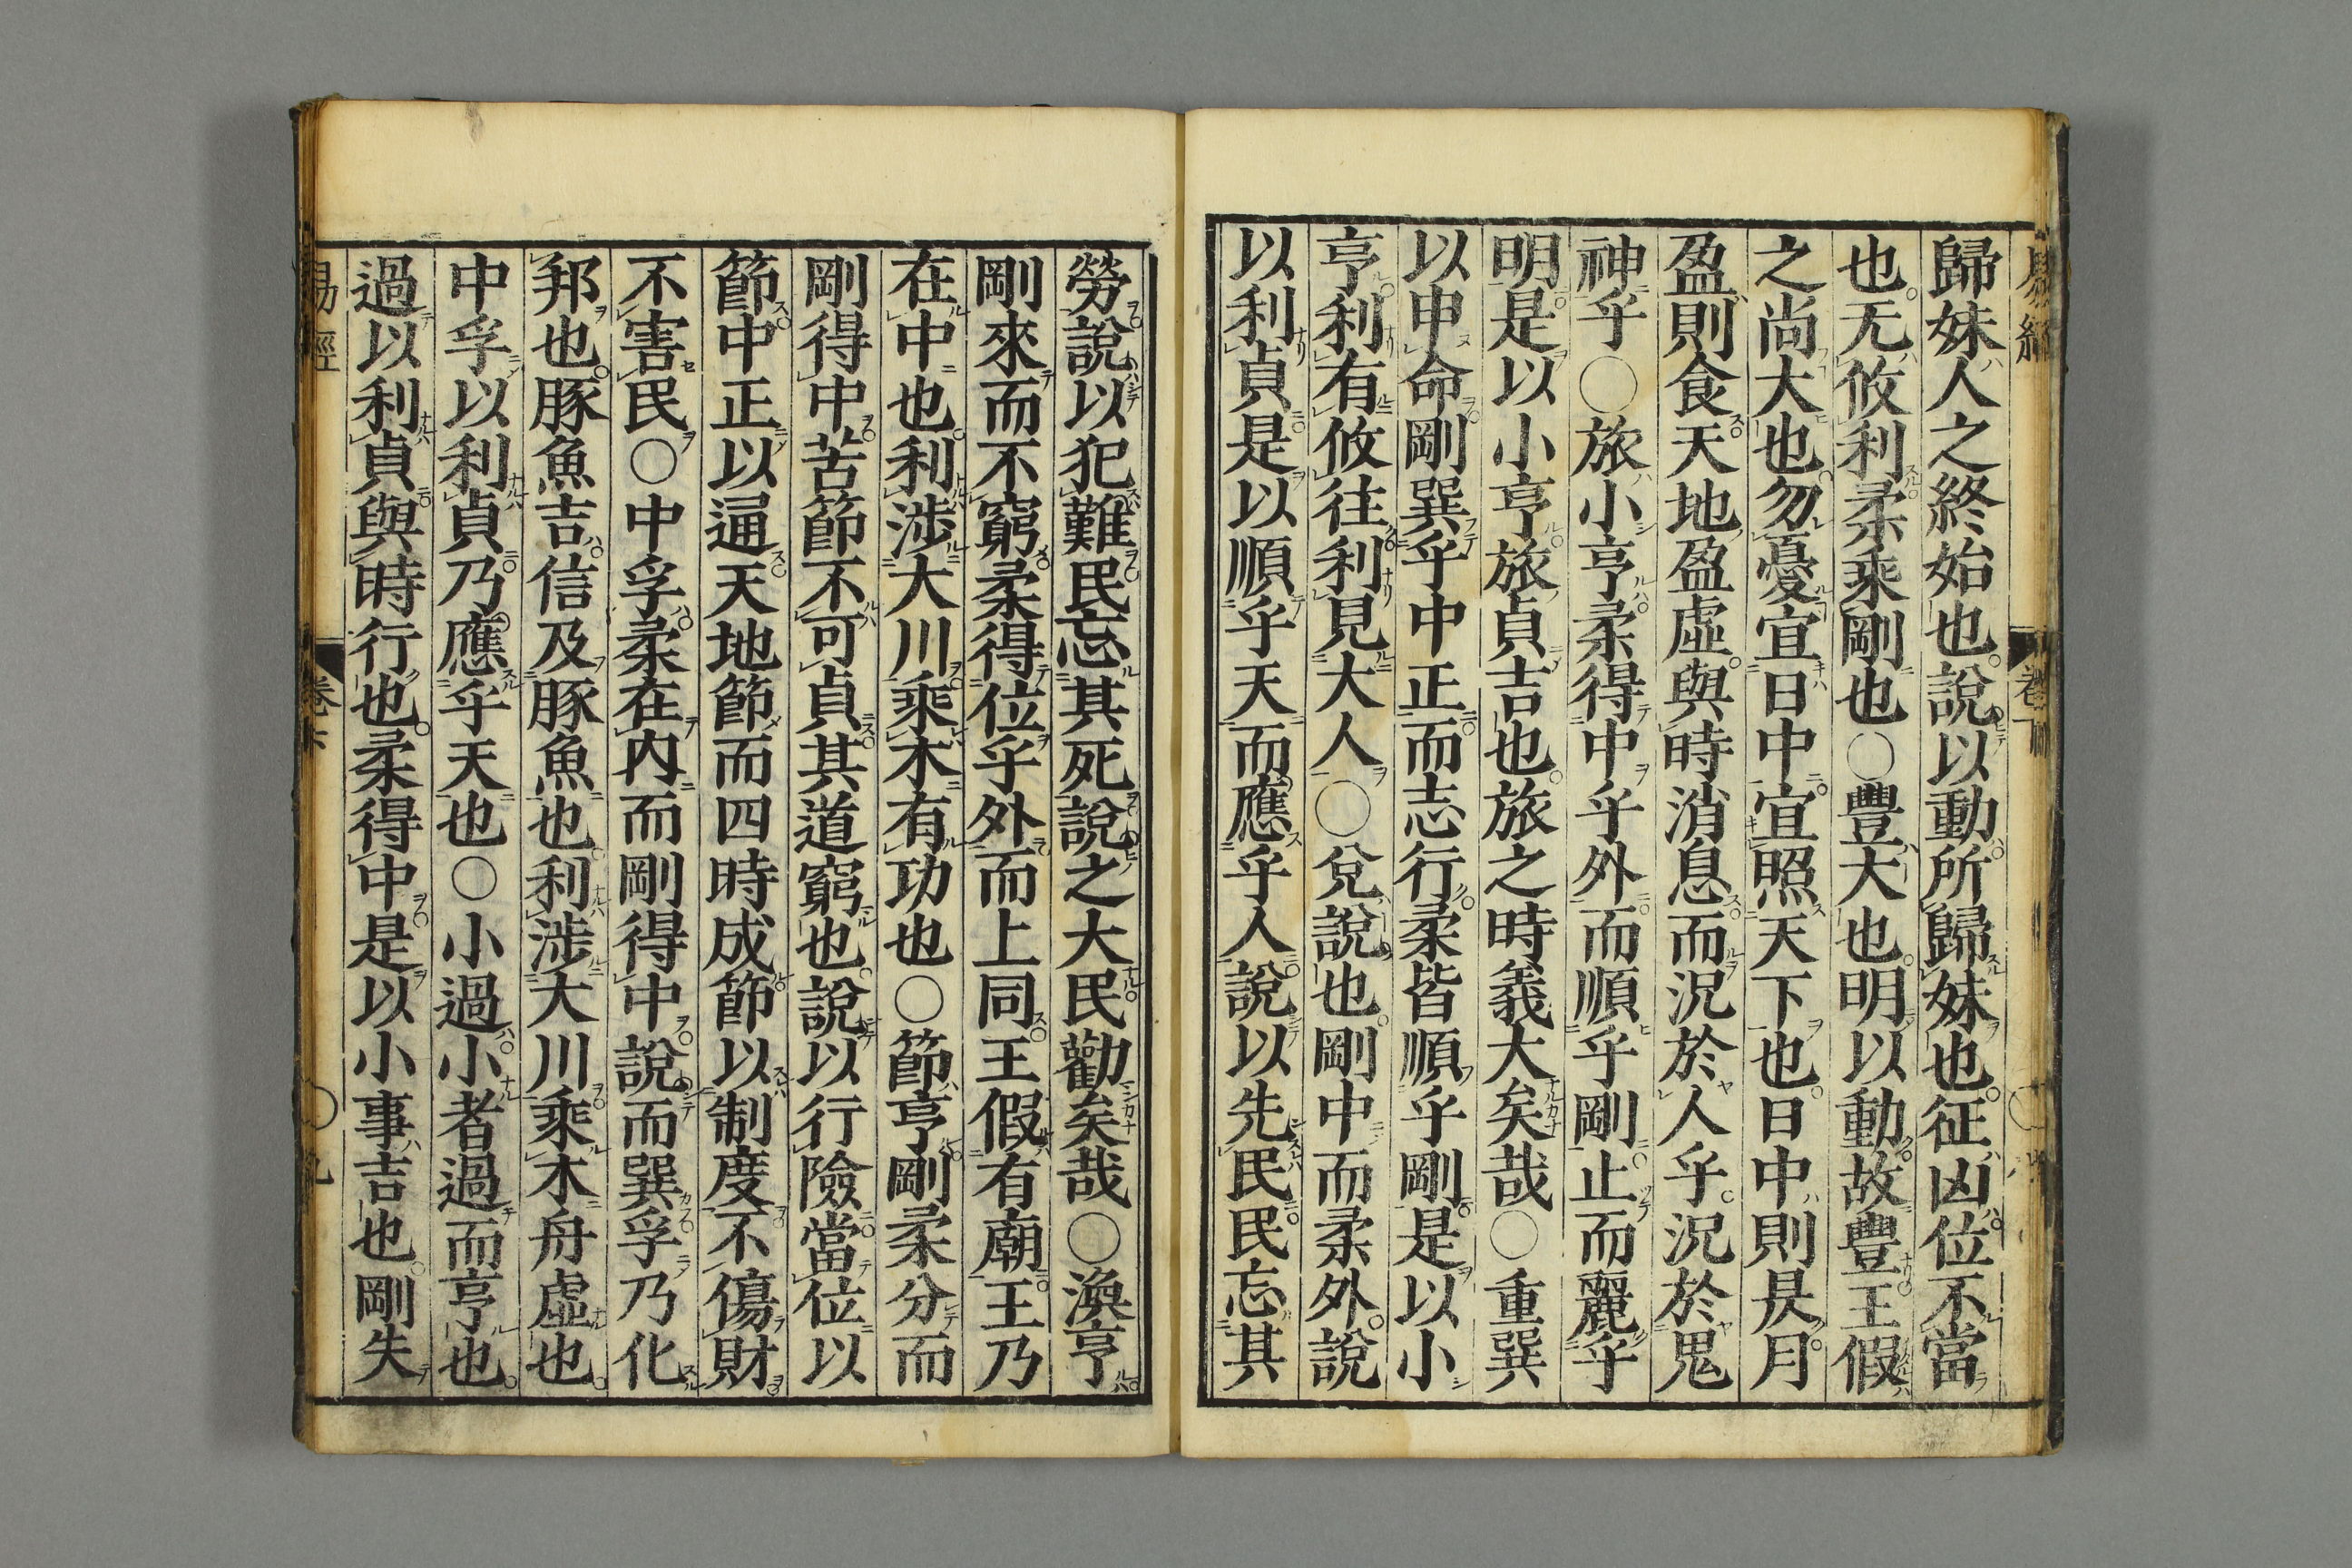 歸妹人之終始也說以動所歸妹也征凶位不當
也无攸利柔乘剛也○豐大也明以動故豐王假
之尚大也勿憂宜日中宜照天下也日中則昃月
盈則食天地盈虛與時消息而況於人乎況於鬼
神乎○旅小亨柔得中乎外而順乎剛止而麗乎
明是以小亨旅貞吉也旅之時義大矣哉○重巽
以申命剛巽乎中正而志行柔皆順乎剛是以小
亨利有攸往利見大人○兌說也剛中而柔外說
以利貞是以順乎天而應乎人說以先民民忘其
勞說以犯難民忘其死說之大民勸矣哉○渙亨
剛來而不窮柔得位乎外而上同王假有廟王乃
在中也利涉大川乘木有功也○節亨剛柔分而
剛得中苦節不可貞其道窮也說以行險當位以
節中正以通天地節而四時成節以制度不傷財
不害民○中孚柔在內而剛得中說而巽孚乃化
邦也豚魚吉信及豚魚也利涉大川乘木舟虛也
中孚以利貞乃應乎天也○小過小者過而亨也
過以利貞與時行也柔得中是以小事吉也剛失
易經